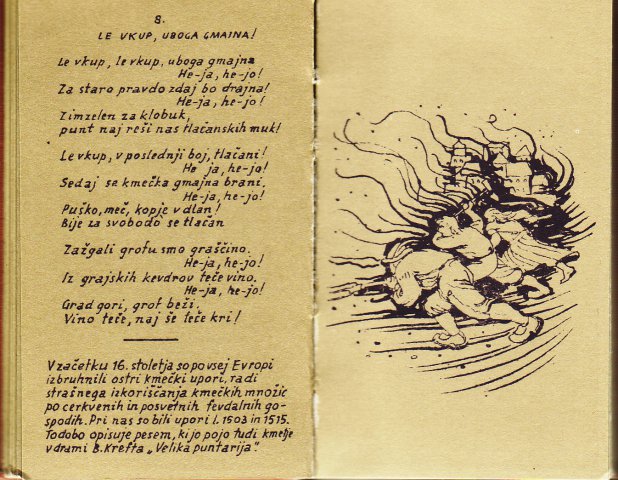 8.
LE VKUP, UBOGA GMAJNA!
Le vkup, le vkup, uboga gmajna
He-ja, he-jo!
Za staro pravdo zdaj bo drajna!
He-ja, he-jo!
Zimzelen za klobuk,
punt naj reši nas tlačanskih muk!
Le vkup, v poslednji boj, tlačani!
He ja, he-jo!
Sedaj se kmečka gmajna brani,
He-ja, he-jo!
Puško, meč, kopje v dlan!
Bije za svobodo se tlačan
Zažgali grofu smo graščino.
He-ja, he-jo!
Iz grajskih kevdrov teče vino,
He-ja, he-jo!
Grad gori, grof beži.
Vino teče, naj še teče kri!
V začetku 16. stoletja so po vsej Evropi
izbruhnili ostri kmečki upori, radi
strašnega izkoriščanja kmečkih množic
po cerkvenih in posvetnih fevdalnih go-
spodih. Pri nas so bili upori l. 1503 in 1515.
To dobo opisuje pesem, ki jo pojo tudi kmetje
v drami B. Krefta „Velika puntarija".